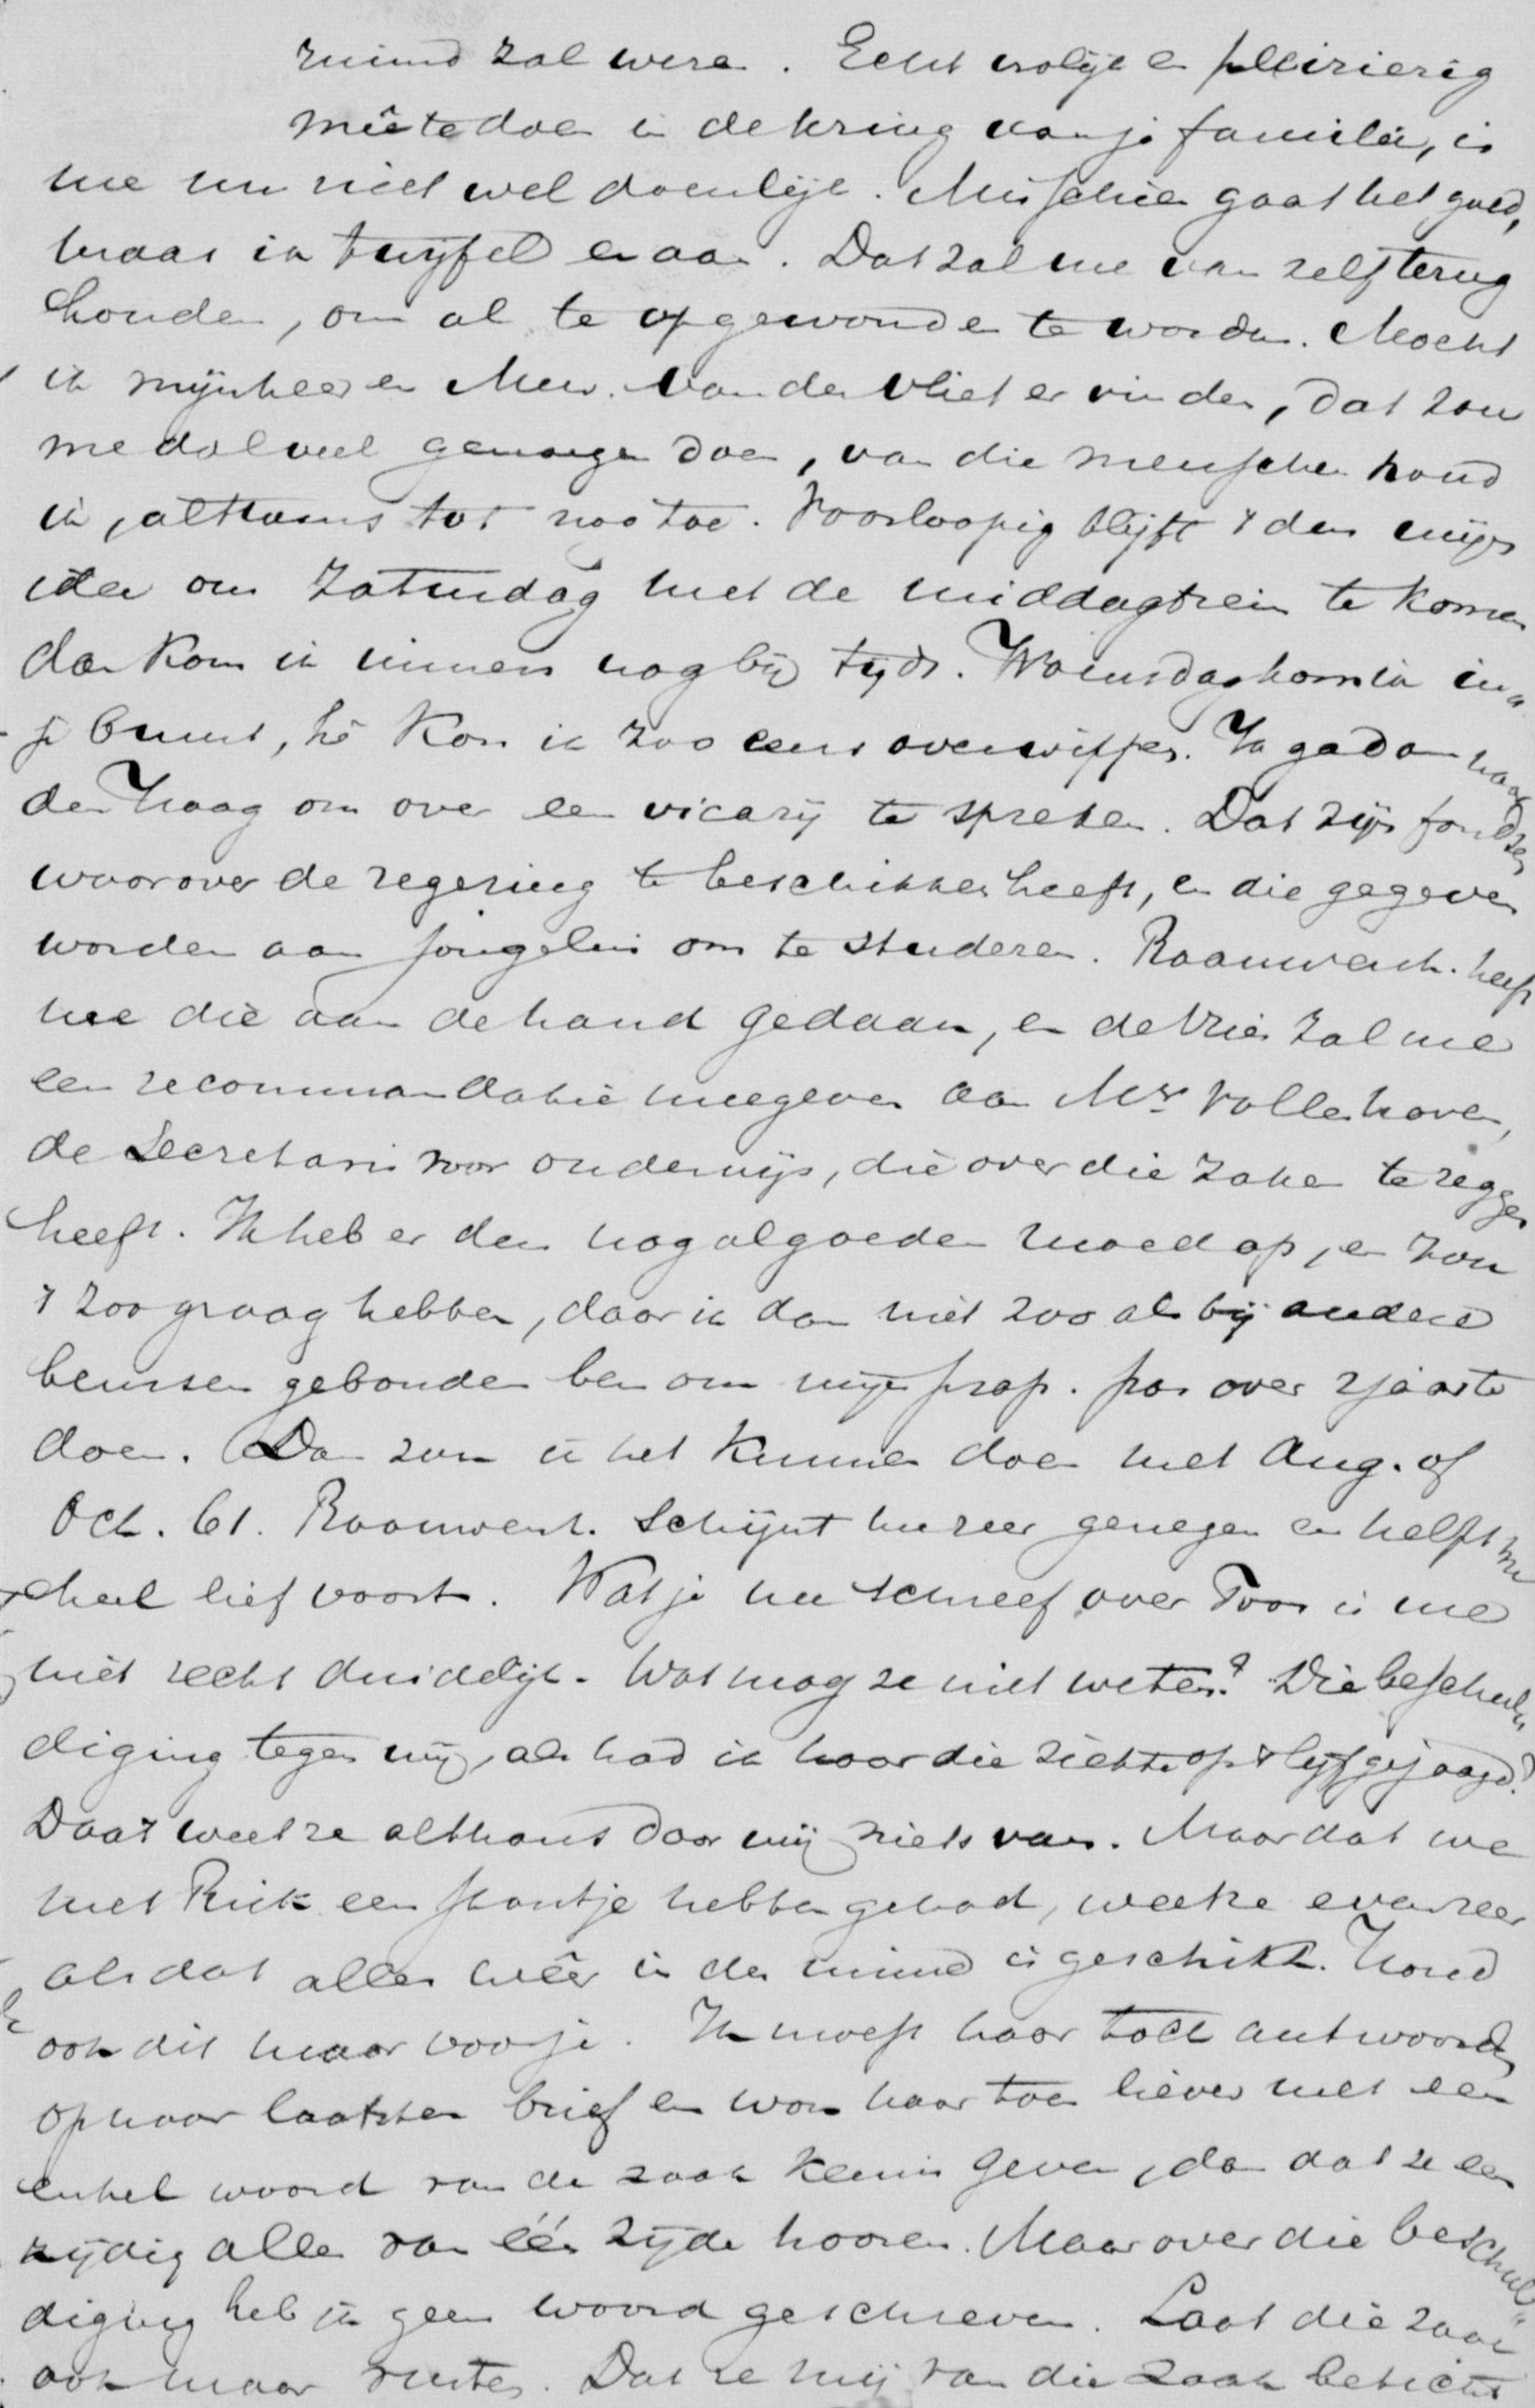 ruimd zal weze. Echt vrolijk en pleizierig
meê te doen in de kring van je familie, is
me nu niet wel doenlijk. Misschien gaat het goed,
maar ik twijfel er aan. Dat zal me van zelf terug
houden, om al te opgewonden te worden. Mocht
ik mijnheer en Mevr. van der Vliet er vinden, dat zou
me dol veel genoegen doen, van die menschen houd
ik, althans tot nog toe. Voorloopig blijft 't dus mijn
idee om Zaturdag met de middagtrein te komen
dan kom ik immers nog bij tijds. Woensdag kom ik in
je buurt, hè kon ik zoo eens overwippen. Ik ga dan naar
den Haag om over een vicarij te spreken. Dat zijn fondsen
waarover de regering te beschikken heeft, en die gegeven
worden aan jongelui om te studeren. Raauwenh. heeft
me die aan de hand gedaan, en de Vries zal me
een recommandatie meegeven aan Mr Vollenhoven,
de Secretaris voor onderwijs, die over die zaken te zeggen
heeft. Ik heb er dus nog al goeden moed op, en zou
't zoo graag hebben, daar ik dan niet zoo als bij andere
beurzen gebonden ben om mijn prop. pas over 2 jaar te
doen. Dan zou ik het kunnen doen met Aug. of
Oct. 61. Raauwenh. schijnt me zeer genegen en helpt me
heel lief voort. Wat je me schreef over Toos is me
niet recht duidelijk. Wat mag ze niet weten? Die beschul
diging tegen mij, als had ik haar die ziekte op 't lijf gejaagd?
Daar weet ze althans door mij niets van. Maar dat we
met Riek een standje hebben gehad, weet ze evenzeer
als dat alles weêr in der minne is geschikt. Houd
ook dit maar voor je. Ik moest haar toch antwoorden
op haar laatsten brief en wou haar toen liever met een
enkel woord van de zaak kennis geven, dan dat ze een
zijdig alles van één zijde hooren. Maar over die beschul
diging heb ik geen woord geschreven. Laat die zaak
ook maar rusten. Dat ze mij van die zaak beticht